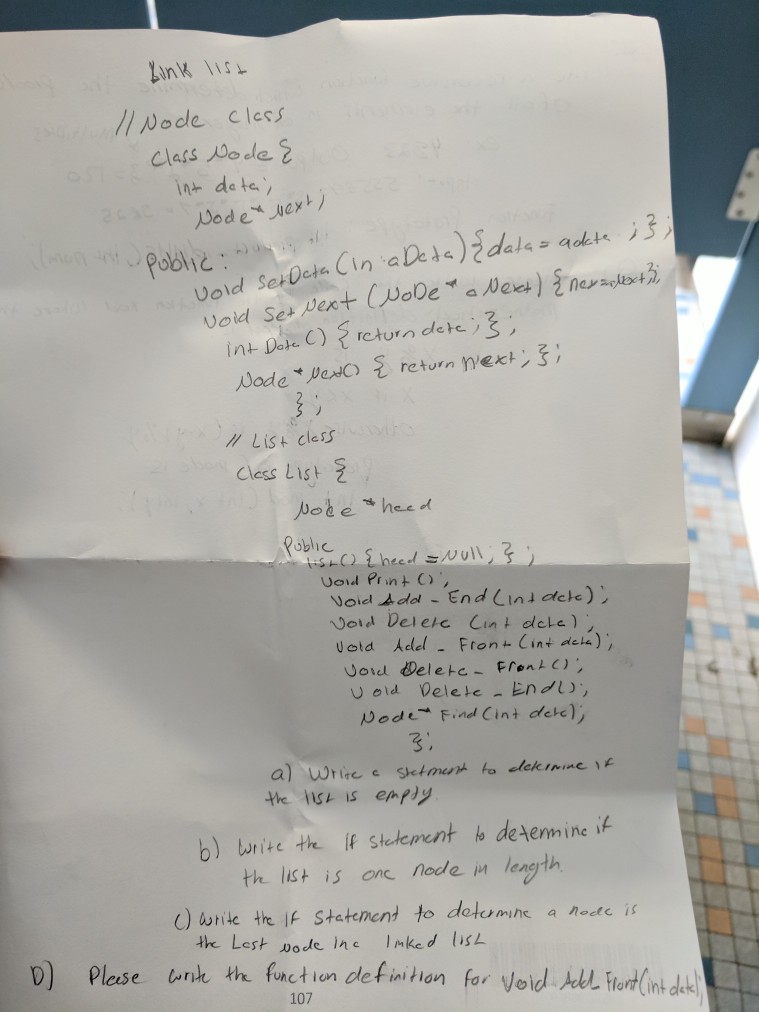 Link list
// Node class
class Node {
int data;
Node* Next;
Public:
Void SetData (In aData) {data = adata ; } ;
Void Set Next (NoDe* a Next) { = };
int Data () { return data ; } ;
Node * Next() { return next ; } ;
} ;
// List class
Class List {
Node * head
Public
List() { head = Null; } ;
Void Print () ;
Void Add - End (int data) ;
Void Delete (int data) ;
Void Add - Front (int data) ;
Void Delete - Front () ;
Void Delete - End() ;
Node* Find (int data) ;
} ;
a) Write a statment to determine if
the list is empty.
b) Write the If statement to determine if
the list is one node in length.
C) Write the If Statement to determine a node is
the Last node in a linked list
D) Please write the function definition for Void Add_Front(int data);
107